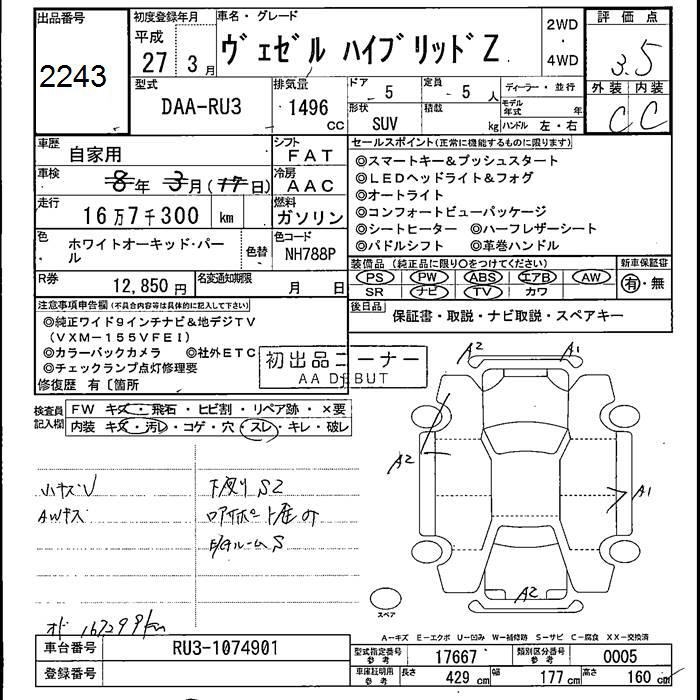 出品番号
2243
初度登録年月
平成
27年 3月
車名・グレード
ヴェゼル ハイブリッド Z
2WD
・
4WD
評価点
3.5
外装 内装
C C
型式
DAA-RU3
排気量
1496
cc
ドア
5
定員
5人
形状
SUV
積載
kg
ディーラー・並行
モデル年式 年
ハンドル 左・右
車歴
自家用
シフト
FAT
車検
8年 3月(17日)
冷房
AAC
走行
16万7千300 km
燃料
ガソリン
色
ホワイトオーキッド・パール
色替
色コード
NH788P
R券
12,850円
名変通知期限
月 日
セールスポイント(正常に機能するものに限ります)
◎スマートキー&プッシュスタート
◎LEDヘッドライト&フォグ
◎オートライト
◎コンフォートビューパッケージ
◎シートヒーター ◎ハーフレザーシート
◎パドルシフト ◎革巻ハンドル
装備品(純正品に限り○をつけてください)
PS PW ABS エアB AW
SR ナビ TV カワ
新車保証書
有・無
後日品
保証書・取説・ナビ取説・スペアキー
注意事項申告欄(不具合内容等は具体的に記入して下さい)
◎純正ワイド9インチナビ&地デジTV
(VXM-155VFEI)
◎カラーバックカメラ ◎社外ETC
◎チェックランプ点灯修理要
修復歴 有〔箇所
初出品コーナー
AA DEBUT
検査員記入欄
FW キズ・飛石・ヒビ割・リペア跡・×要
内装 キズ・汚レ・コゲ・穴・スレ・キレ・破レ
小キズU
下廻りS2
AWキズ
E/GルームS
A2
A1
A2
A1
A2
スペア
A-キズ E-エクボ U-凹み W-補修跡 S-サビ C-腐食 XX-交換済
車台番号
RU3-1074901
型式指定番号
参考
17667
類別区分番号
参考
0005
登録番号
車庫証明用
参考
長さ
429cm
幅
177cm
高さ
160cm